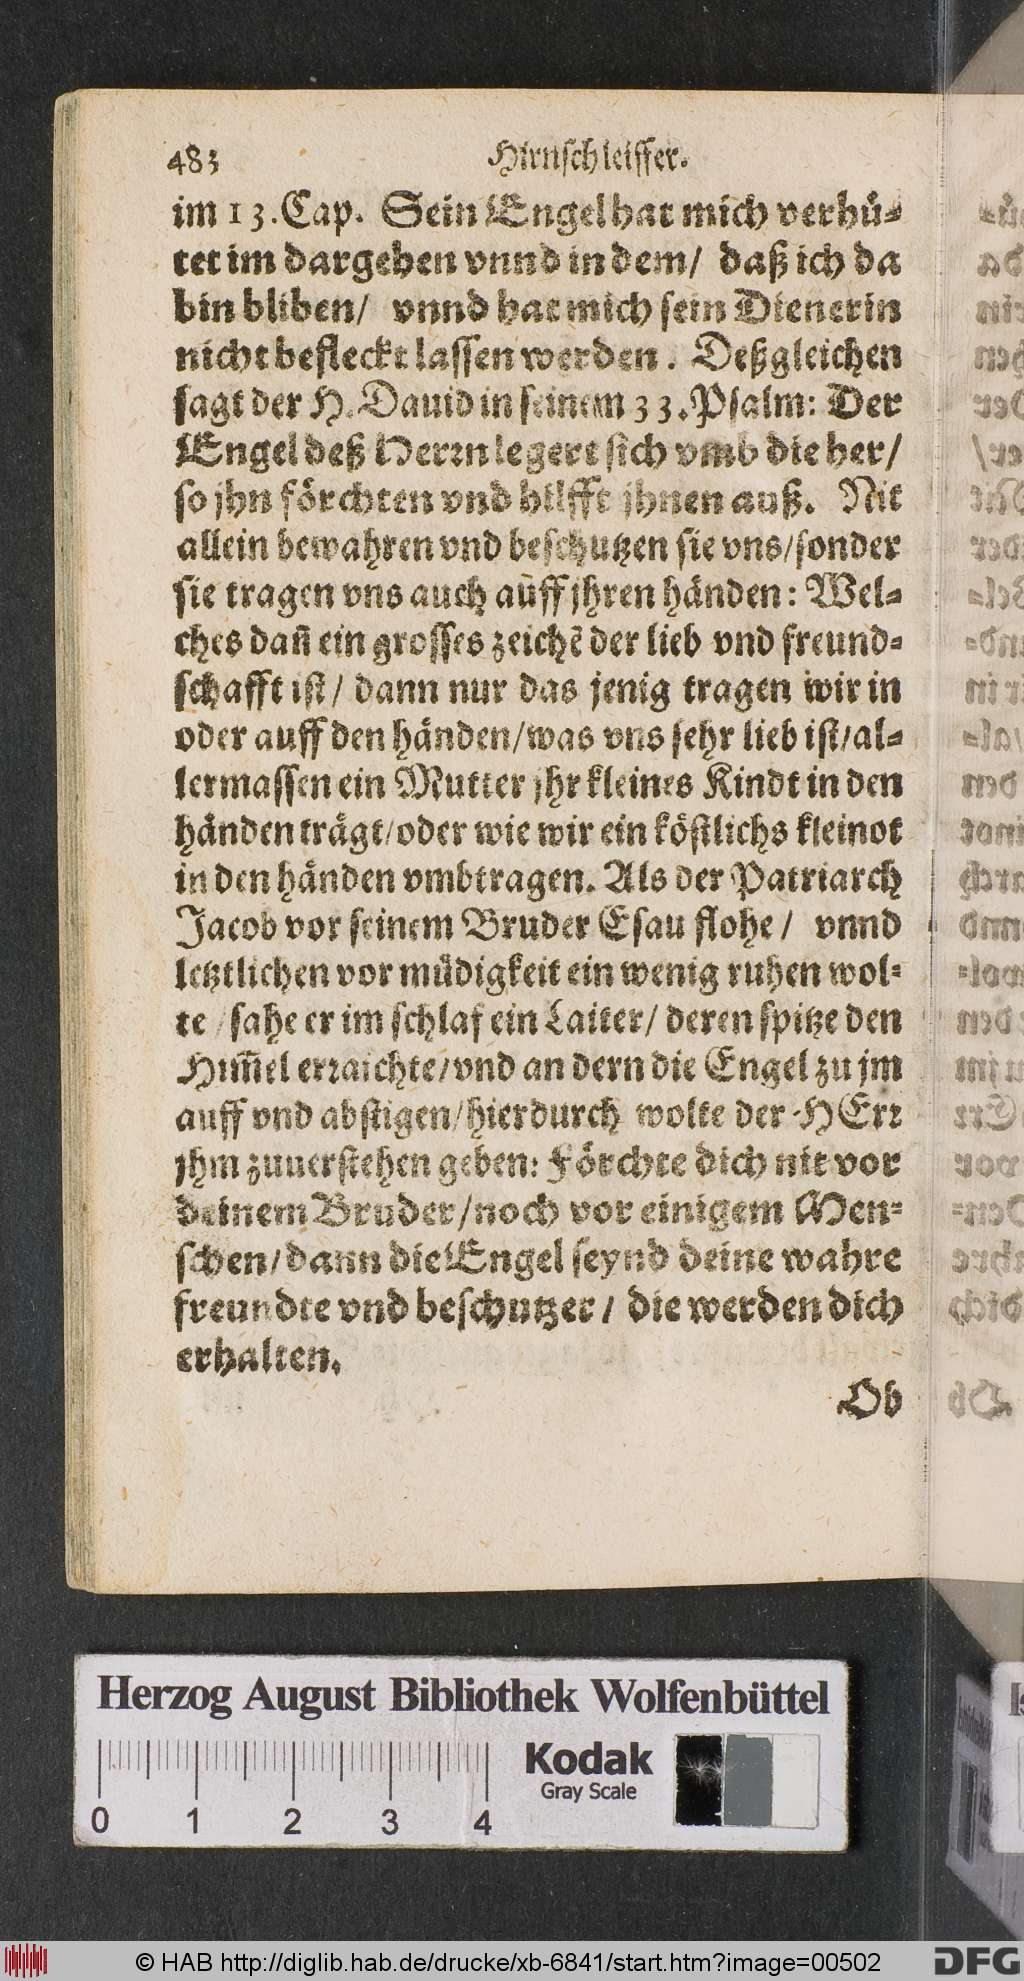 483 Hirnschleiffer.
im 13. Cap. Sein Engel hat mich verhü-
tet im dargehen vnnd in dem/ daß ich da
bin bliben/ vnnd hat mich sein Dienerin
nicht befleckt lassen werden. Deßgleichen
sagt der H. Dauid in seinem 33. Psalm: Der
Engel deß Herrn legert sich vmb die her/
so jhn förchten vnd hilfft jhnen auß. Nit
allein bewahren vnd beschutzen sie vns/sonder
sie tragen vns auch auff jhren händen: Wel-
ches dañ ein grosses zeichẽ der lieb vnd freund-
schafft ist/ dann nur das jenig tragen wir in
oder auff den händen/was vns sehr lieb ist/al-
lermassen ein Mutter jhr kleines Kindt in den
händen trägt/oder wie wir ein köstlichs kleinot
in den händen vmbtragen. Als der Patriarch
Jacob vor seinem Bruder Esau flohe/ vnnd
letztlichen vor müdigkeit ein wenig ruhen wol-
te/sahe er im schlaf ein Laiter/ deren spitze den
Him̃el erraichte/vnd an dern die Engel zu jm
auff vnd abstigen/hierdurch wolte der HErr
jhm zuuerstehen geben: Förchte dich nit vor
deinem Bruder/noch vor einigem Men-
schen/dann die Engel seynd deine wahre
freundte vnd beschutzer/ die werden dich
erhalten.
Ob
Herzog August Bibliothek Wolfenbüttel
Kodak
Gray Scale
0 1 2 3 4
© HAB http://diglib.hab.de/drucke/xb-6841/start.htm?image=00502
DFG